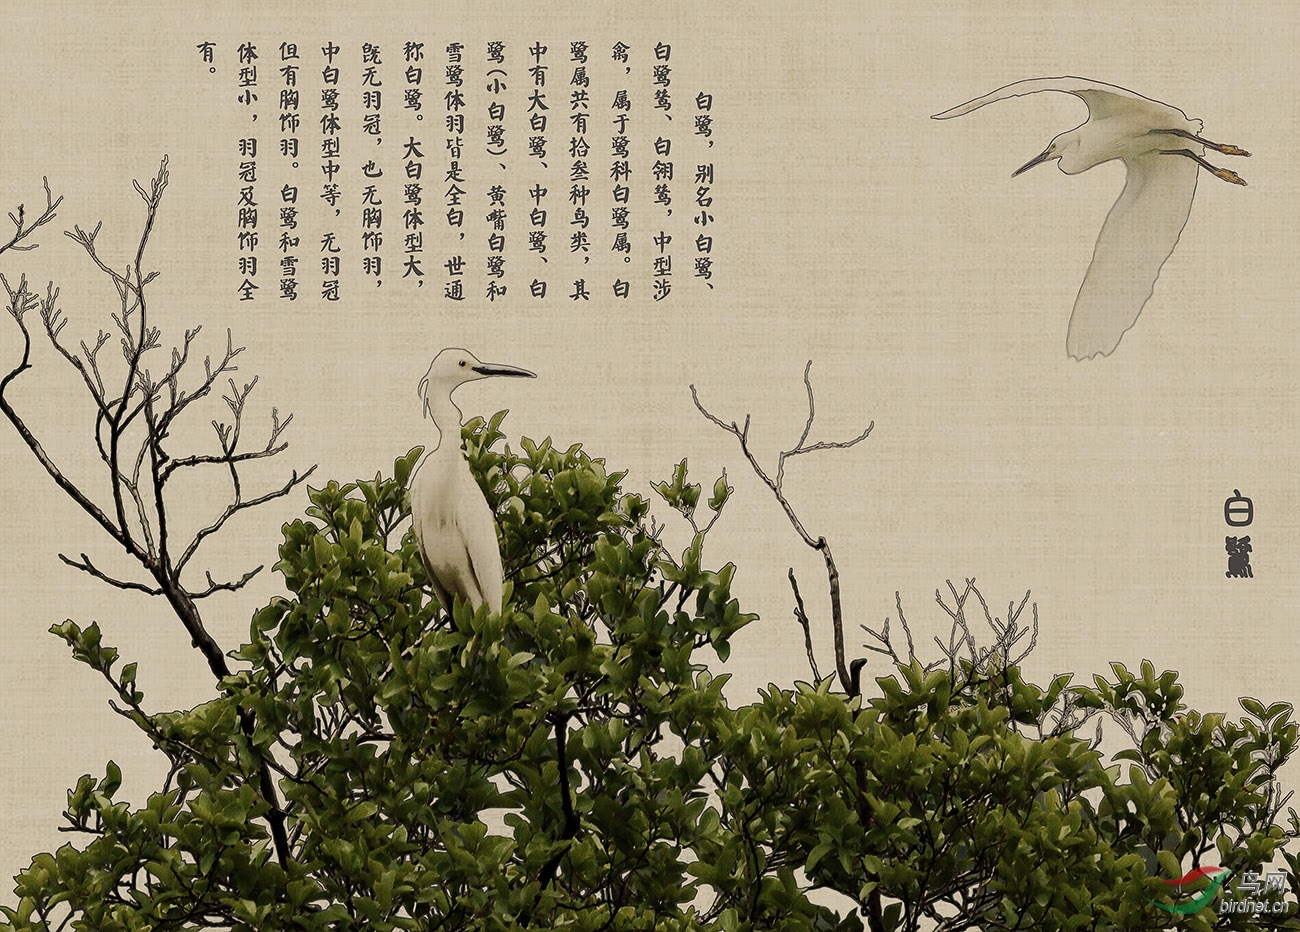 白鹭，别名小白鹭、
白鹭鸶、白翎鸶，中型涉
禽，属于鹭科白鹭属。白
鹭属共有拾叁种鸟类，其
中有大白鹭、中白鹭、白
鹭(小白鹭)、黄嘴白鹭和
雪鹭体羽皆是全白，世通
称白鹭。大白鹭体型大，
既无羽冠，也无胸饰羽，
中白鹭体型中等，无羽冠
但有胸饰羽。白鹭和雪鹭
体型小，羽冠及胸饰羽全
有。
白鷺
鸟网
birdnet.cn